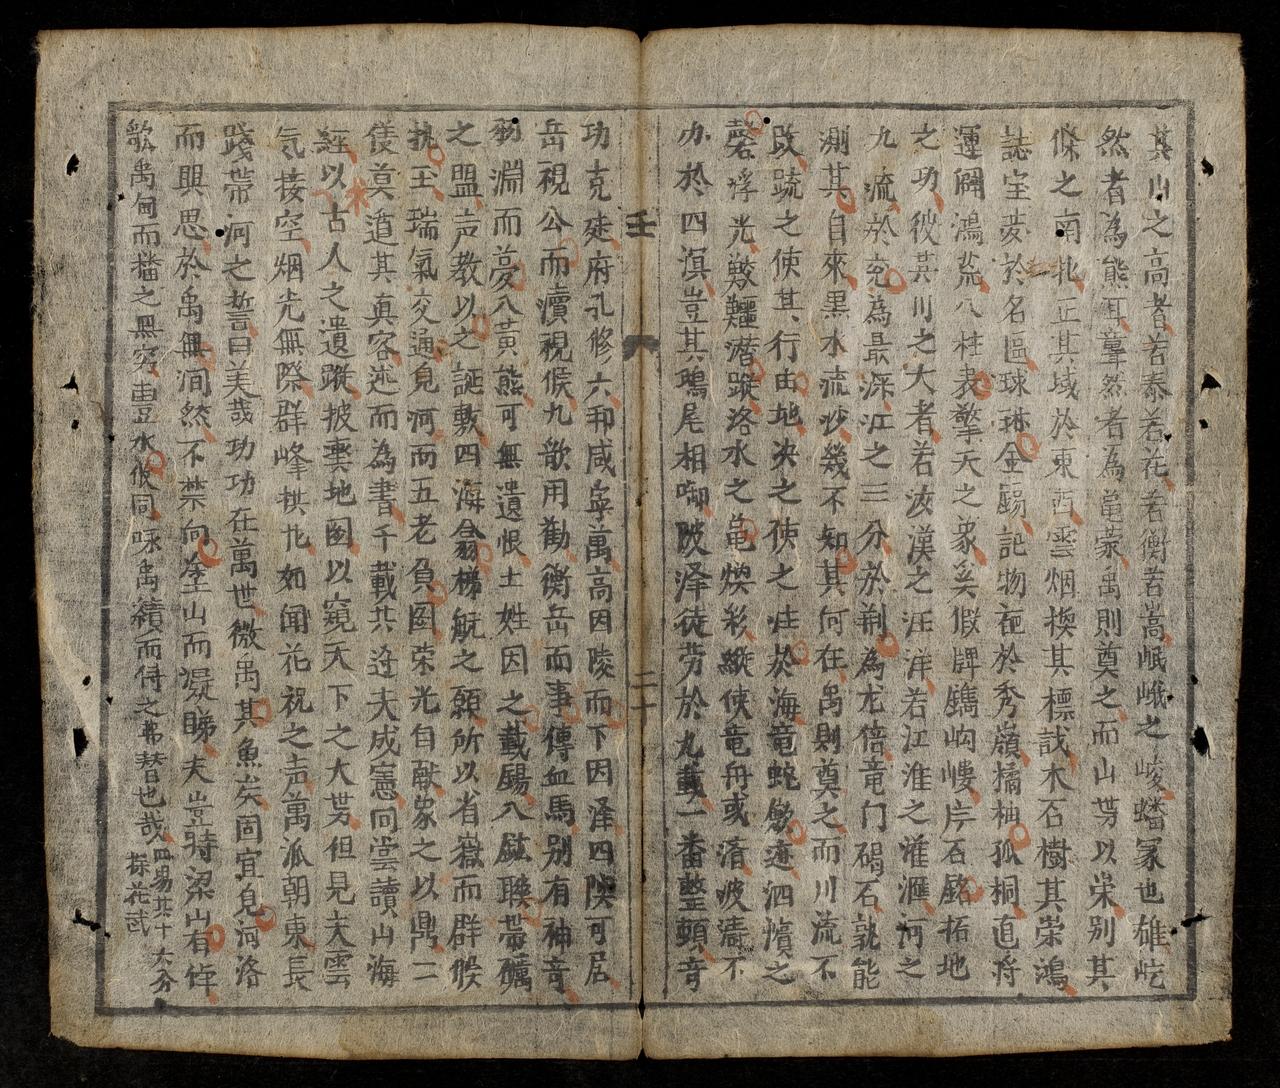 其山之高者若泰若花若衡若嵩岷峨之峻蟠冡也雄屹
然者為熊耳㝫然者為亀蒙禹則奠之而山势以栄别其
條之南北正其域於東西雲烟換其標誌木石樹其荣鴻
誌宝夢於名區球琳全錫記物在於秀嶺橘柚孤桐直将
運開鴻荒八柱表擎天之象奚假碑鐫岣嶁片石銘拓地
之功彼其川之大者若汝漢之汪洋若江淮之滙河之
九流於兗為最深江之三分於荆為尤倍竜门碣石孰能
測其自來黒水流沙幾不知其何在禹則奠之而川流不
改疏之使其行由地决之使之注於海竜蛇斂迹泗濆之
磬浮光鮫鱷潛蹤洛水之亀煥彩縱使竜舟或済波濤不
力於四溟豈其鴟尾相啣陂泽徒劳於九載一番整頓竒
壬 二十
功克延府孔修六和咸寧萬高因陵而下因泽四隩可居
岳視公而瀆視侯九歌用勸衡岳而事傳血馬别有神竒
羽淵而夢入黄熊可無遺恨土姓因之載賜入鉉聨带礪
之盟声教以之誕敷四海翕梯航之願所以省嶽而群候
执玉瑞氣交通見河而五老負圖荣光自献象之以鼎二
侯莫逍其真容述而為書千載共迓夫成憲向嘗讀山海
經以古人之遺蹤披輿地圖以窺天下之大势但見夫雲
気接空烟光無際群峰拱北如闻花祝之声萬派朝東長
踐带河之誓曰美哉功功在萬世微禹其魚矣固宜見河洛
而興思於禹無间然不禁向塗山而凝睇夫豈特梁山有倬
歌禹甸而播之無穷豊水攸同咏禹績而侍之弗替也哉 四場共十六分 探花武